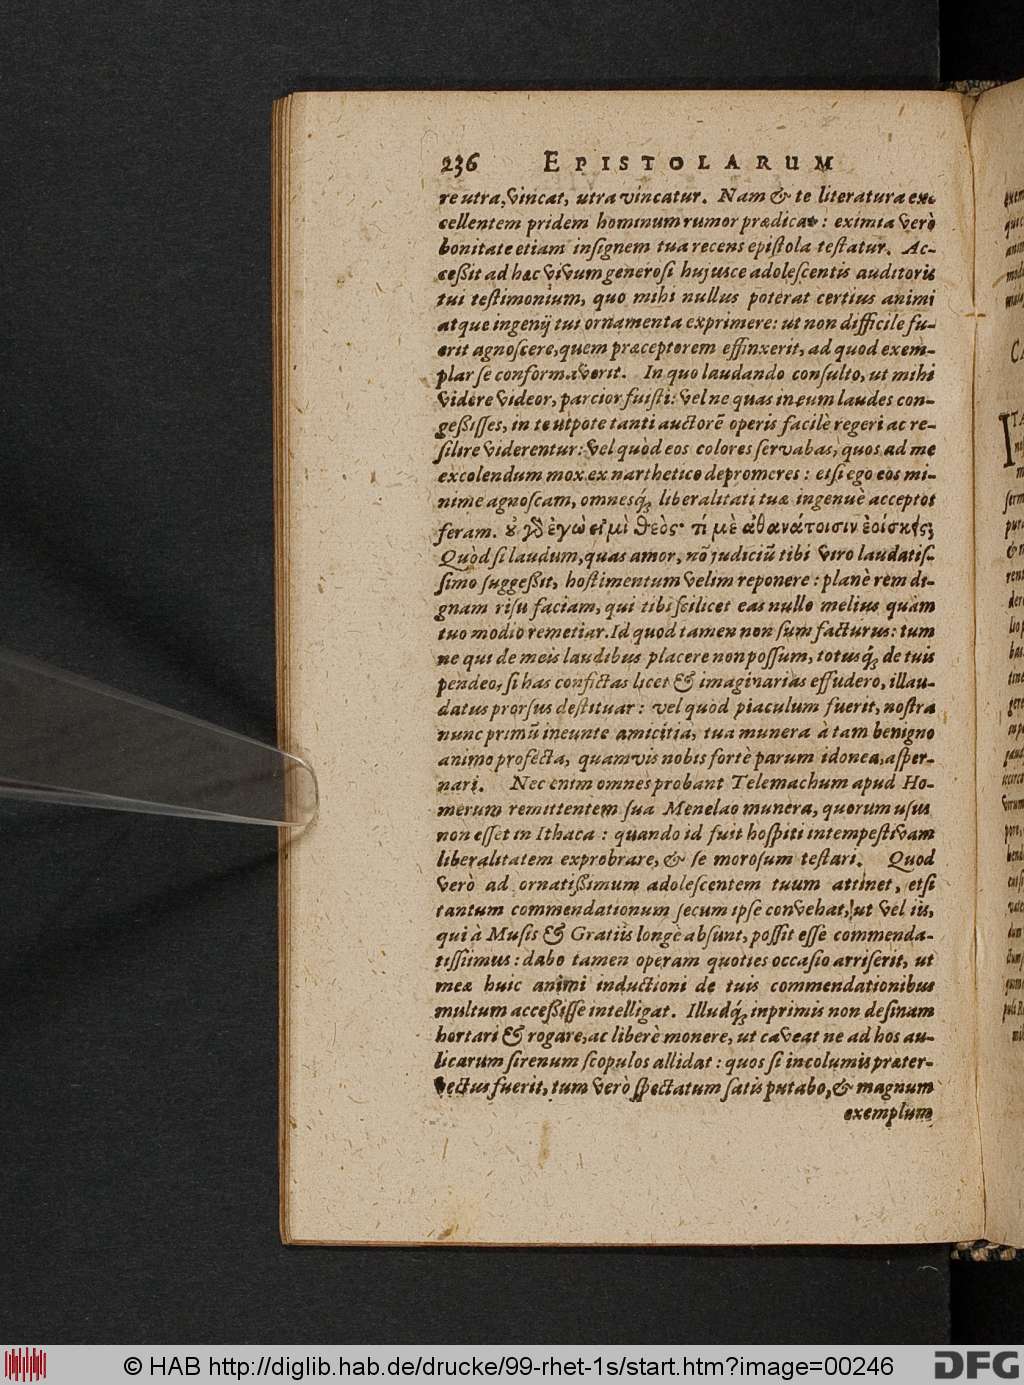 236 EPISTOLARUM
re utra, vincat, utra vincatur. Nam & te literatura ex-
cellentem pridem hominum rumor prædicat : eximia verò
bonitate etiam insignem tua recens epistola testatur. Ac-
ceßit ad hæc vivum generosi hujusce adolescentis auditoris
tui testimonium, quo mihi nullus poterat certius animi
atque ingenij tui ornamenta exprimere: ut non difficile fu-
erit agnoscere, quem præceptorem effinxerit, ad quod exem-
plar se conformaverit. In quo laudando consulto, ut mihi
videre videor, parcior fuisti: vel ne quas in eum laudes con-
geßisses, in te utpote tanti auctorē operis facilè regeri ac re-
silire viderentur: vel quòd eos colores servabas, quos ad me
excolendum mox ex narthetico depromeres : etsi ego eos mi-
nime agnoscam, omnesq́; liberalitati tuæ ingenuè acceptos
feram. ȣ̓ γδ ἐγὼ εἰμὶ θεὸς· τί μὲ ἀθανάτοισιν ἐοίσκεις;
Quòd si laudum, quas amor, nō judiciū tibi viro laudatis-
simo suggeßit, hostimentum velim reponere : planè rem di-
gnam risu faciam, qui tibi scilicet eas nullo melius quàm
tuo modio remetiar. Id quod tamen non sum facturus: tum
ne qui de meis laudibus placere non possum, totusq́; de tuis
pendeo, si has confictas licet & imaginarias effudero, illau-
datus prorsus destituar : vel quòd piaculum fuerit, nostra
nunc primū ineunte amicitia, tua munera à tam benigno
animo profecta, quamvis nobis fortè parum idonea, asper-
nari. Nec enim omnes probant Telemachum apud Ho-
merum remittentem sua Menelao munera, quorum usus
non esset in Ithaca : quando id fuit hospiti intempestivam
liberalitatem exprobrare, & se morosum testari. Quod
verò ad ornatißimum adolescentem tuum attinet, etsi
tantum commendationum secum ipse convehat, ut vel iis,
qui à Musis & Gratiis longè absunt, possit esse commenda-
tissimus : dabo tamen operam quoties occasio arriserit, ut
meæ huic animi inductioni de tuis commendationibus
multum acceßisse intelligat. Illudq́; inprimis non desinam
hortari & rogare, ac liberè monere, ut caveat ne ad hos au-
licarum sirenum scopulos allidat : quos si incolumis præter-
vectus fuerit, tum verò spectatum satis putabo, & magnum
exemplum
© HAB http://diglib.hab.de/drucke/99-rhet-1s/start.htm?image=00246
DFG